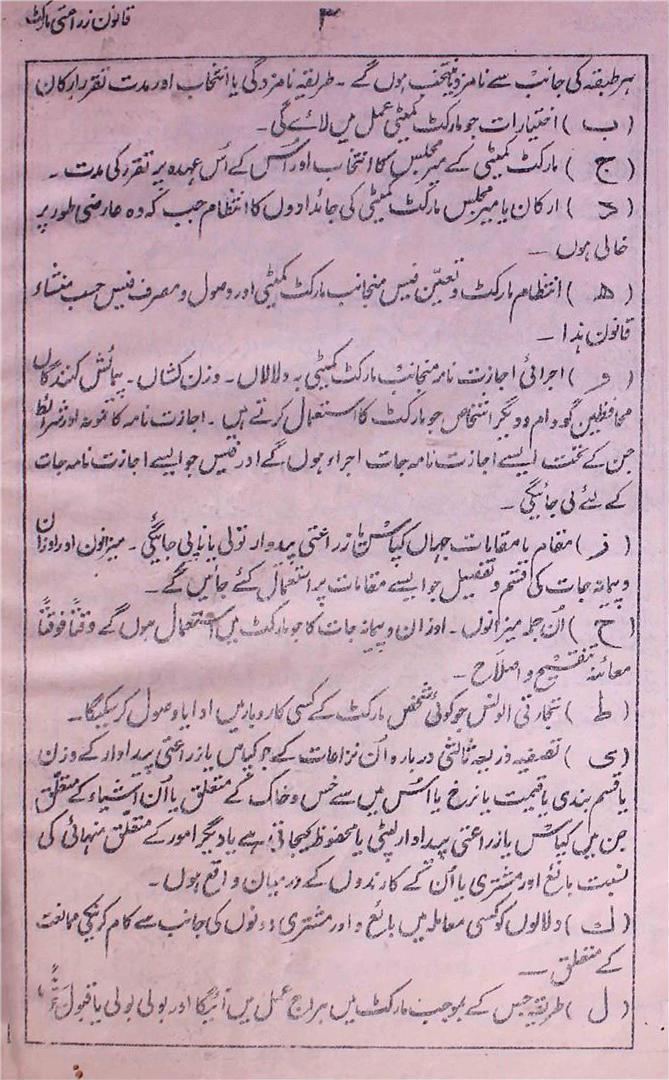 قانون زراعتی مارکٹ
۳
ہر طبقہ کی جانب سے نامزد یا منتخب ہوں گے ۔ طریقہ نامزدگی یا انتخاب اور مدت تقرر ارکان
( ب ) اختیارات جو مارکٹ کمیٹی عمل میں لائے گی۔
( ج ) مارکٹ کمیٹی کے میر مجلس کا انتخاب اور اُس کے اُس عہدہ پر تقرر کی مدت ۔
( د ) ارکان یا میر مجلس مارکٹ کمیٹی کی جائدادوں کا انتظام جب کہ وہ عارضی طور پر
خالی ہوں ۔
( ھ ) انتظام مارکٹ و تعیّن فیس منجانب مارکٹ کمیٹی اور وصول و مصرف فیس حسب منشاء
قانون ہذا ۔
( و ) اجرائی اجازت نامہ منجانب مارکٹ کمیٹی بہ دلالاں ۔ وزن کشاں ۔ پیمائش کنندگان
محافظین گودام و دیگر اشخاص جو مارکٹ کا استعمال کرتے ہیں ۔ اجازت نامہ کا نمونہ اور شرائط
جن کے تحت ایسے اجازت نامہ جات اجراء ہوں گے اور فیس جو ایسے اجازت نامہ جات
کے لئے لی جائیگی ۔
( ز ) مقام یا مقامات جہاں کپاس یا زراعتی پیداوار تولی یا ناپی جائیگی ۔ میزانوں اور اوزان
و پیمانہ جات کی قسم و تفصیل جو ایسے مقامات پر استعمال کئے جائیں گے ۔
( ح ) اُن جملہ میزانوں ۔ اوزان و پیمانہ جات کا جو مارکٹ میں استعمال ہوں گے وقتاً فوقتاً
معائنہ تنقیح و اصلاح ۔
( ط ) تجارتی الونس جو کوئی شخص مارکٹ کے کسی کاروبار میں ادا یا وصول کر سکیگا ۔
( ی ) تصفیہ ذریعہ ثالثی دربارہ اُن نزاعات کے جو کپاس یا زراعتی پیداوار کے وزن
یا قسم بندی یا قیمت یا نرخ یا اس میں سے خس و خاک کے متعلق یا اُن اشیاء کے متعلق
جن میں کپاس یا زراعتی پیداوار لپٹی یا محفوظ کیجاتی ہے یا دیگر امور کے متعلق منہائی کی
نسبت بائع اور مشتری یا اُن کے کارندوں کے درمیان واقع ہوں ۔
( ک ) دلالوں کو کسی معاملہ میں بائع و اور مشتری دونوں کی جانب سے کام کرنیکی ممانعت
کے متعلق ۔
( ل ) طریقہ جس کے بموجب مارکٹ میں ہراج عمل میں آئیگا اور بولی بولی یا قبول